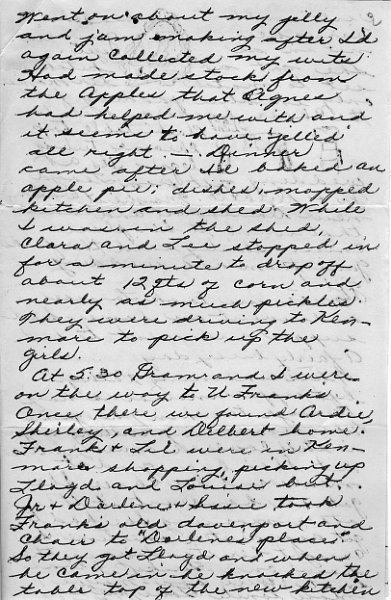 Went on about my jelly
and jam making after I'd
again collected my wits.
Had made stock from
the Apples that Agnes
had helped me with and
it seems to have "jelled"
all right. — Dinner
came after I'd baked an
apple pie; dishes, mopped
kitchen and shed. While
I was in the shed,
Clara and Lee stopped in
for a minute to drop off
about 12 qts of corn and
nearly as much pickles.
They were driving to Ken-
mare to pick up the
girls.
At 5:30 Gram and I were
on the way to U Franks.
Once there we found Ardie,
Shirley, and Delbert home.
Frank & Lil were in Ken-
mare shopping, picking up
Lloyd and Louise but..
Jr & Darlene & Susie took
Frank's old davenport and
chair to "Darlenes place".
So they got Lloyd and when
he came in he knocked the
table top of the new kitchen